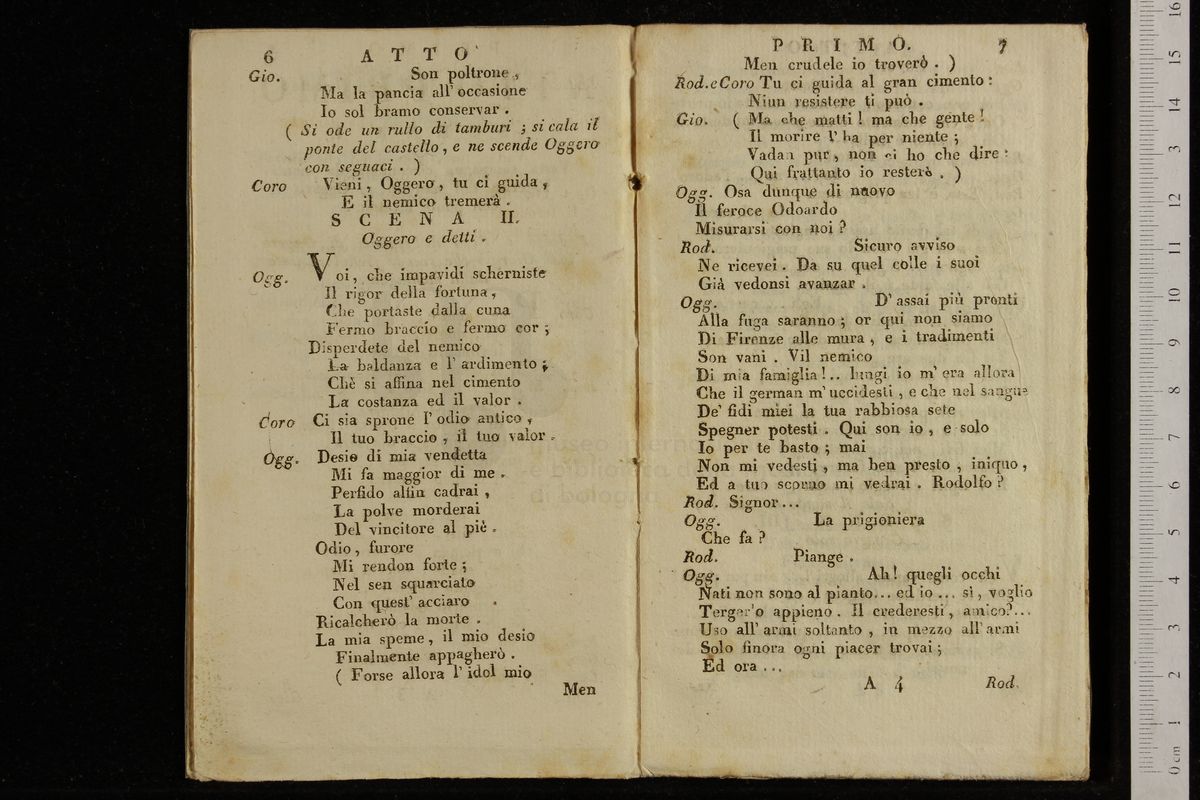 6 ATTO
Gio. Son poltrone,
Ma la pancia all' occasione
Io sol bramo conservar.
( Si ode un rullo di tamburi ; si cala il
ponte del castello, e ne scende Oggero
con seguaci. )
Coro Vieni, Oggero, tu ci guida,
E il nemico tremerà.
SCENA II.
Oggero e detti.
Ogg. Voi, che impavidi scherniste
Il rigor della fortuna,
Che portaste dalla cuna
Fermo braccio e fermo cor ;
Disperdete del nemico
La baldanza e l' ardimento ;
Chè si affina nel cimento
La costanza ed il valor.
Coro Ci sia sprone l' odio antico,
Il tuo braccio, il tuo valor.
Ogg. Desio di mia vendetta
Mi fa maggior di me.
Perfido alfin cadrai,
La polve morderai
Del vincitore al piè.
Odio, furore
Mi rendon forte ;
Nel sen squarciato
Con quest' acciaro
Ricalcherò la morte.
La mia speme, il mio desio
Finalmente appagherò.
( Forse allora l' idol mio
Men
PRIMO. 7
Men crudele io troverò. )
Rod. e Coro Tu ci guida al gran cimento :
Niun resistere ti può.
Gio. ( Ma che matti ! ma che gente !
Il morire l' ha per niente ;
Vadan pur, non ci ho che dire :
Qui frattanto io resterò. )
Ogg. Osa dunque di nuovo
Il feroce Odoardo
Misurarsi con noi ?
Rod. Sicuro avviso
Ne ricevei. Da su quel colle i suoi
Già vedonsi avanzar.
Ogg. D' assai più pronti
Alla fuga saranno ; or qui non siamo
Di Firenze alle mura, e i tradimenti
Son vani. Vil nemico
Di mia famiglia !.. lungi io m' era allora
Che il german m' uccidesti, e che nel sangue
De' fidi miei la tua rabbiosa sete
Spegner potesti. Qui son io, e solo
Io per te basto ; mai
Non mi vedesti, ma ben presto, iniquo,
Ed a tuo scorno mi vedrai. Rodolfo ?
Rod. Signor...
Ogg. La prigioniera
Che fa ?
Rod. Piange.
Ogg. Ah! quegli occhi
Nati non sono al pianto... ed io... sì, voglio
Tergerlo appieno. Il crederesti, amico?...
Uso all' armi soltanto, in mezzo all' armi
Solo finora ogni piacer trovai ;
Ed ora...
A 4 Rod.
di bologna
0 cm 1 2 3 4 5 6 7 8 9 10 11 12 13 14 15 16